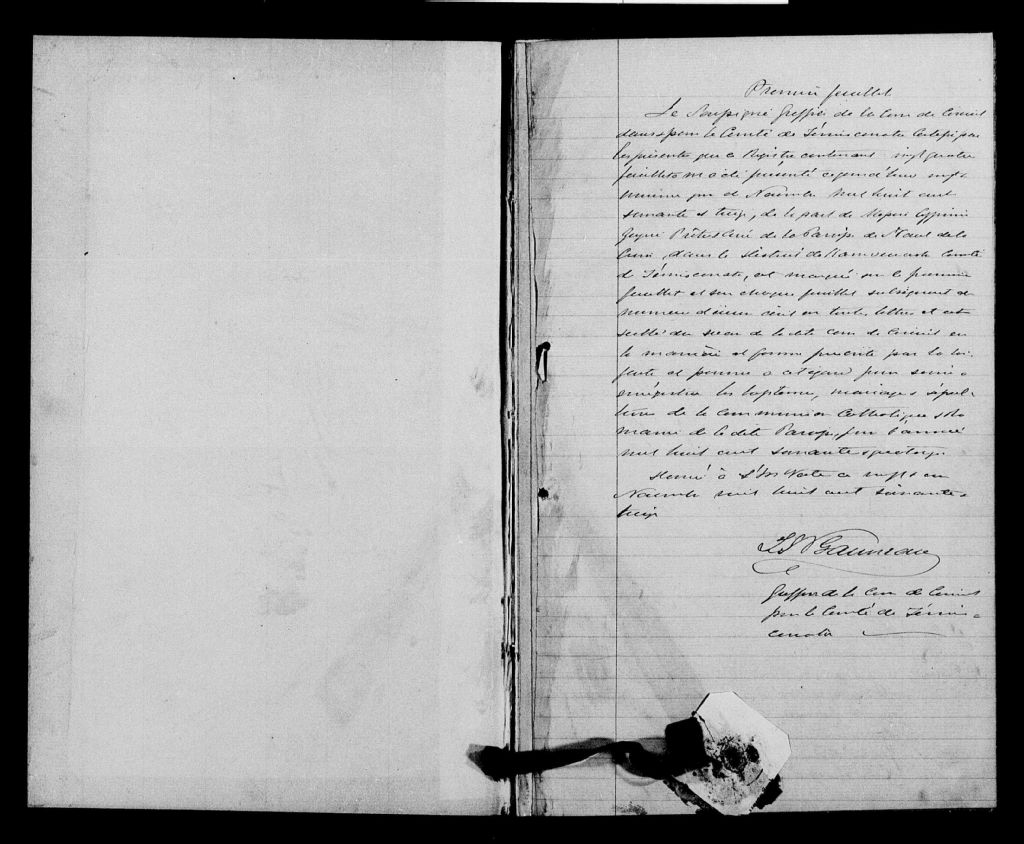 Premier feuillet
Le Soussigné Greffier de la Cour de Circuit
dans & pour le Comté de Témiscouata Certifie par
les présentes que ce Registre contenant vingt quatre
feuillets m'a été présenté aujourd'hui vingt
Novembre mil huit cent
soixante et treize, de la part de Messire Cyprien
Gagné Prêtre Curé de la Paroisse de Notre Dame
dans le District de Kamouraska Comté
de Témiscouata, est marqué sur le premier
feuillet et sur chaque feuillet subséquent du
numéro d'icelui écrit en toutes lettres et est
scellé du sceau de la dite Cour de Circuit en
la manière et forme prescrite par la loi
faite et pourvue à cet égard pour servir à
enrégistrer les baptêmes, mariages & sépul-
tures de la communion Catholique &
Romaine de la dite Paroisse, pour l'année
mil huit cent soixante & quatorze
Donné à Verte ce vingt
Novembre mil huit cent soixante &
treize
Gauvreau
Greffier de la Cour de Circuit
pour le Comté de Témis-
couata